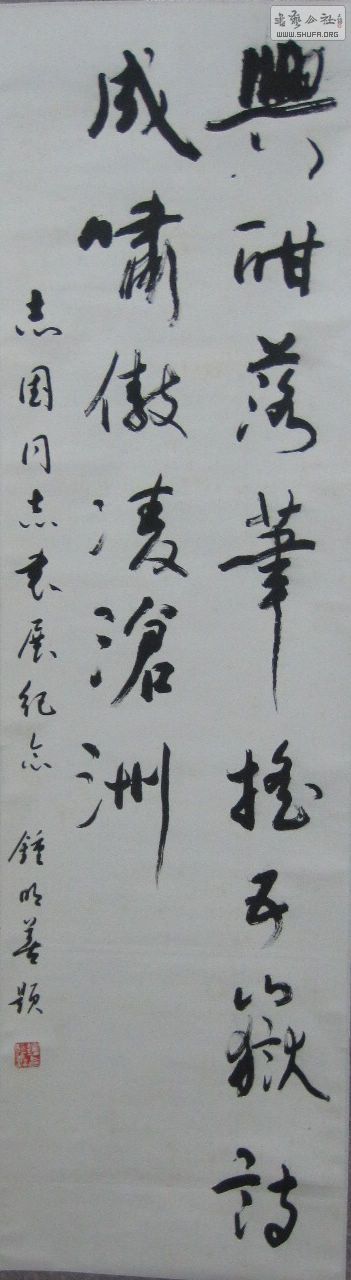 興酣落筆搖五嶽詩
成嘯傲凌滄洲
志国同志書展纪念 鍾明善題
書藝公社
WWW.SHUFA.ORG